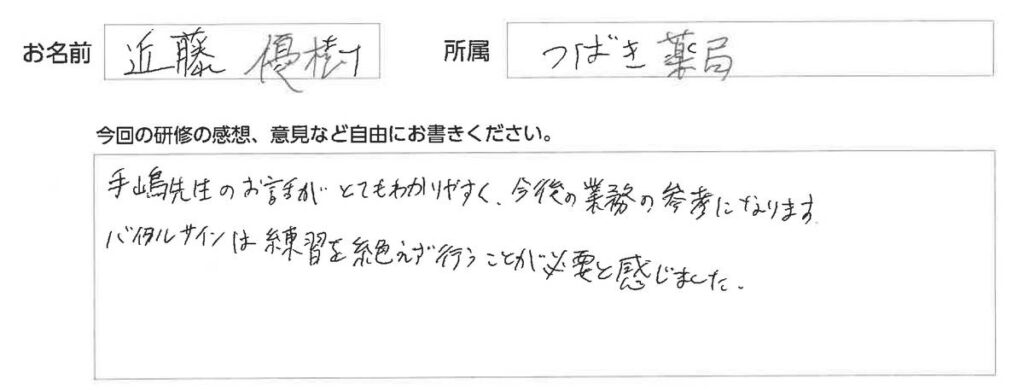 お名前 近藤 優樹 所属 つばき薬局
今回の研修の感想、意見など自由にお書きください。
手嶋先生のお話がとてもわかりやすく、今後の業務の参考になります
バイタルサインは練習を絶えず行うことが必要と感じました。